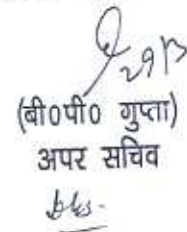 29/3
(बी०पी० गुप्ता)
अपर सचिव